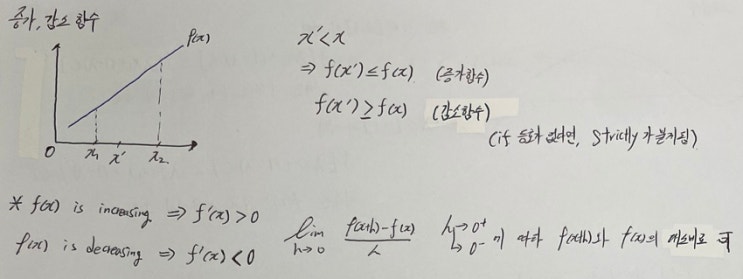 증가, 감소 함수
f(x)
0 x₁ x' x₂
x' < x
⇒ f(x') ≤ f(x) (증가함수)
f(x') ≥ f(x) (감소함수)
(if 등호가 없다면, Strictly가 붙게됨)
* f(x) is increasing ⇒ f'(x) > 0
f(x) is decreasing ⇒ f'(x) < 0
lim h→0 f(x+h)-f(x) / h
h→0⁺
↳ 0⁻ 에 따라 f(x+h)와 f(x)의